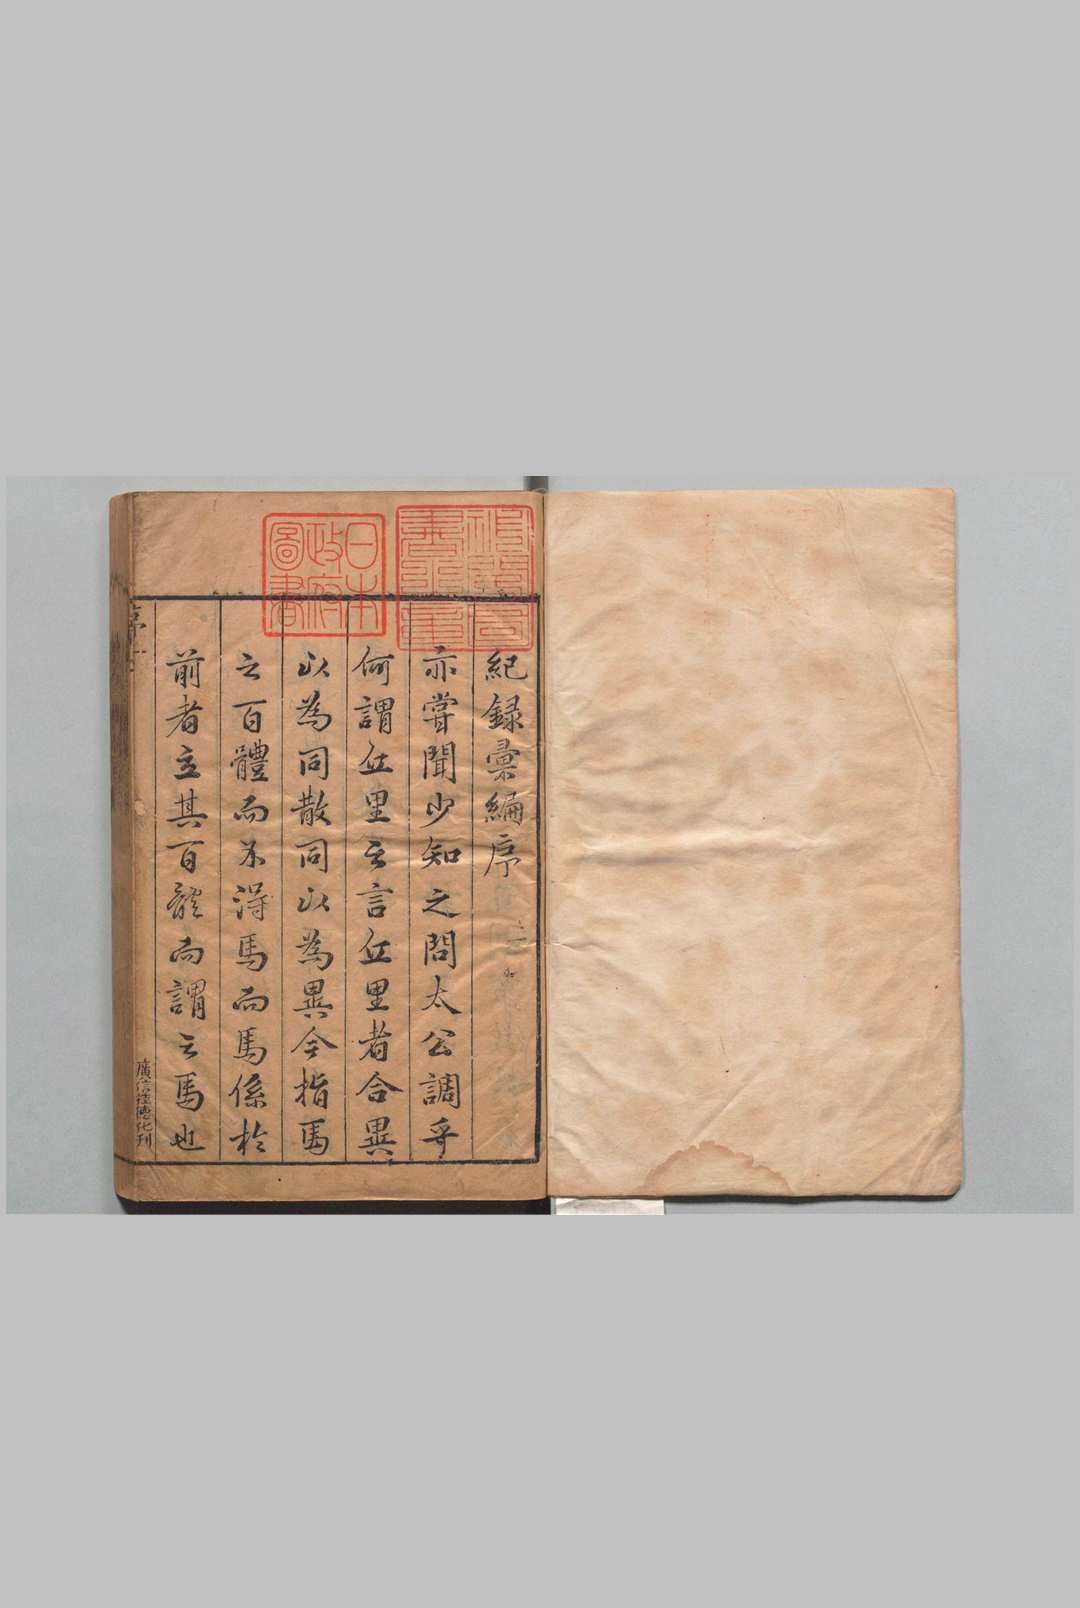 紀録彙編序
亦嘗聞少知之問太公調乎
何謂丘里之言丘里者合異
以為同散同以為異今指馬
之百體而不得馬而馬係於
前者立其百體而謂之馬也
日本
政府
圖書
序